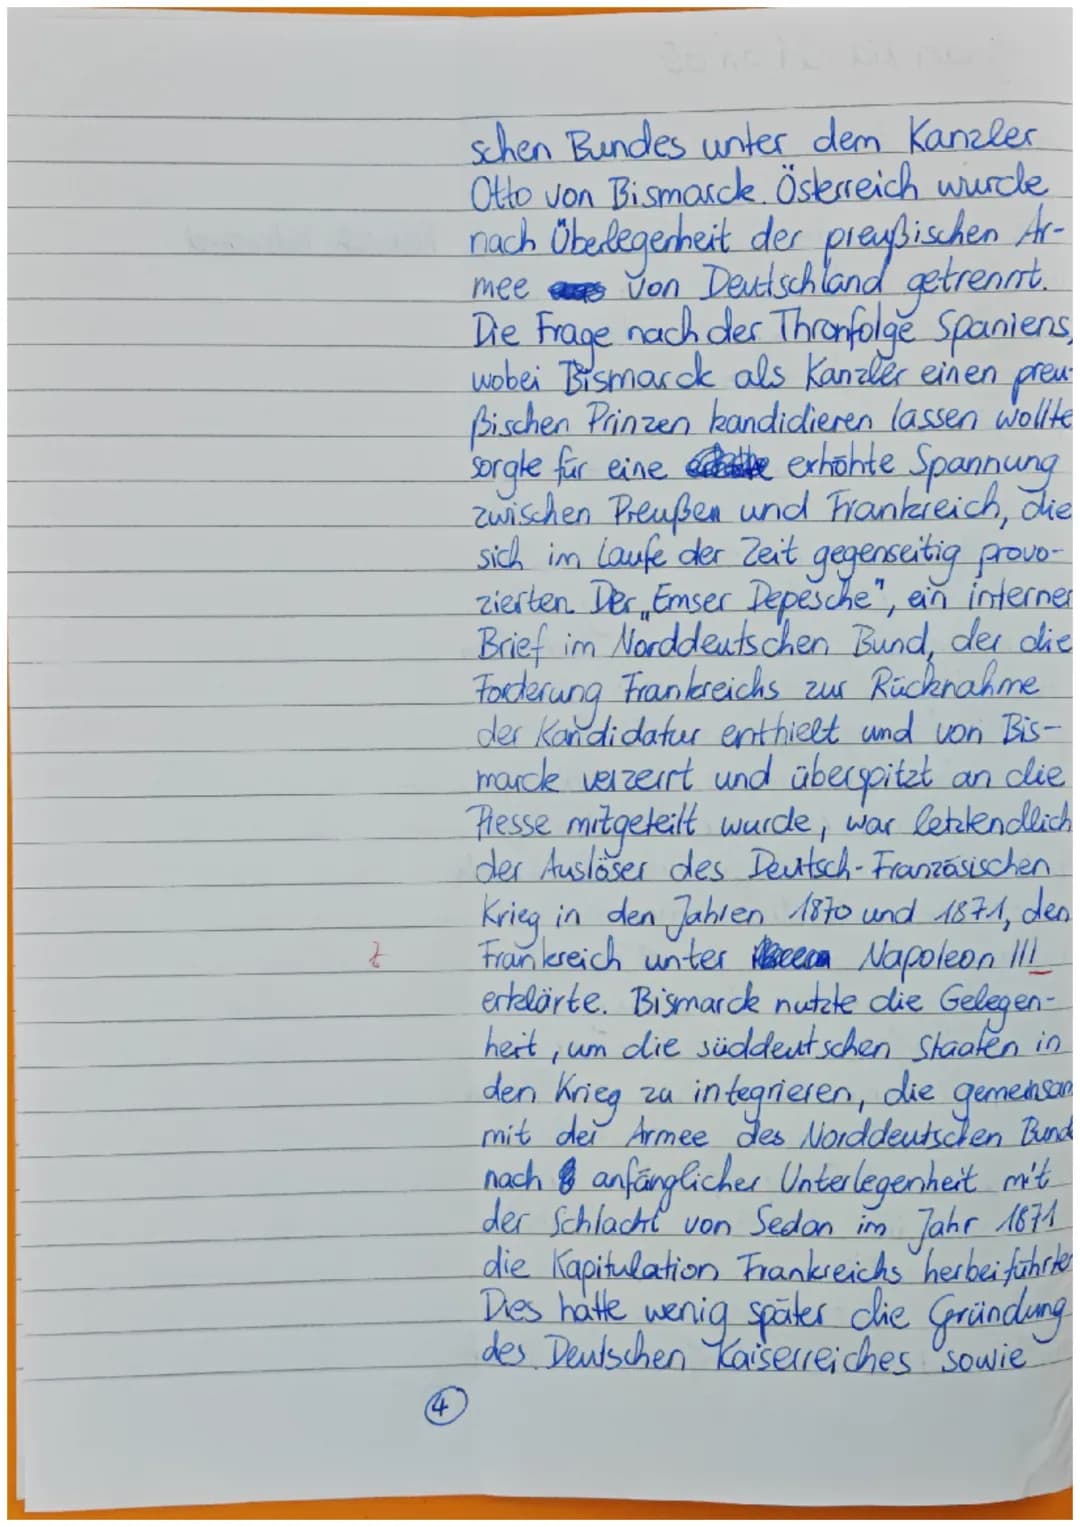 schen Bundes unter dem Kanzler
Otto von Bismarck. Österreich wurde
nach Überlegenheit der preußischen Ar-
mee von Deutschland getrennt.
Die Frage nach der Thronfolge Spaniens,
wobei Bismarck als Kanzler einen preu-
ßischen Prinzen kandidieren lassen wollte
sorgte für eine erhöhte Spannung
zwischen Preußen und Frankreich, die
sich im Laufe der Zeit gegenseitig provo-
zierten. Der „Emser Depesche", ein interner
Brief im Norddeutschen Bund, der die
Forderung Frankreichs zur Rücknahme
der Kandidatur enthielt und von Bis-
marck verzerrt und überspitzt an die
Presse mitgeteilt wurde, war letztendlich
der Auslöser des Deutsch-Französischen
Krieg in den Jahren 1870 und 1871, den
Z Frankreich unter Napoleon III
erklärte. Bismarck nutzte die Gelegen-
heit, um die süddeutschen Staaten in
den Krieg zu integrieren, die gemeinsam
mit der Armee des Norddeutschen Bund
nach anfänglicher Unterlegenheit mit
der Schlacht von Sedan im Jahr 1871
die Kapitulation Frankreichs herbeiführte
Dies hatte wenig später die Gründung
des Deutschen Kaiserreiches sowie
4